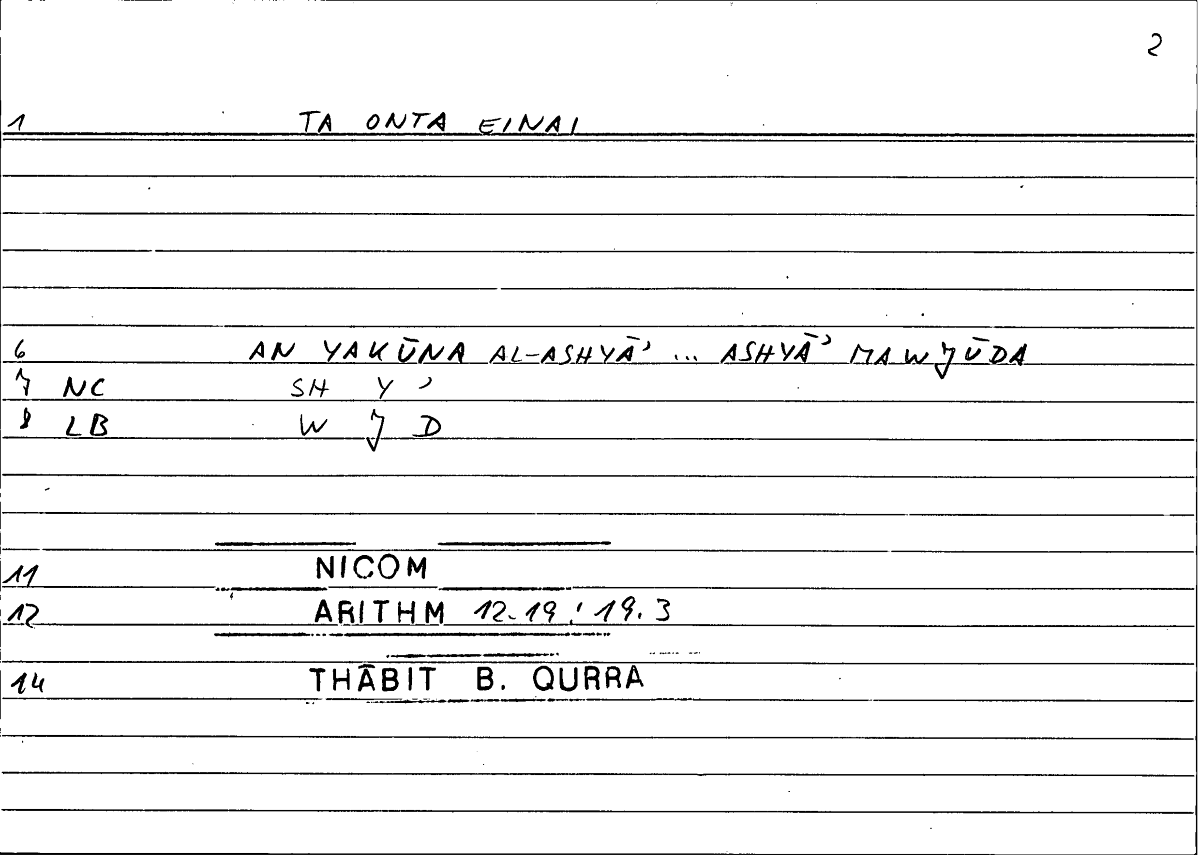 2
1 TA ONTA EINAI
6 AN YAKŪNA AL-ASHYĀʾ ... ASHYĀʾ MAWJŪDA
7 NC SH Y ʾ
8 LB W J D
11 NICOM
12 ARITHM 12.19 : 19.3
14 THĀBIT B. QURRA